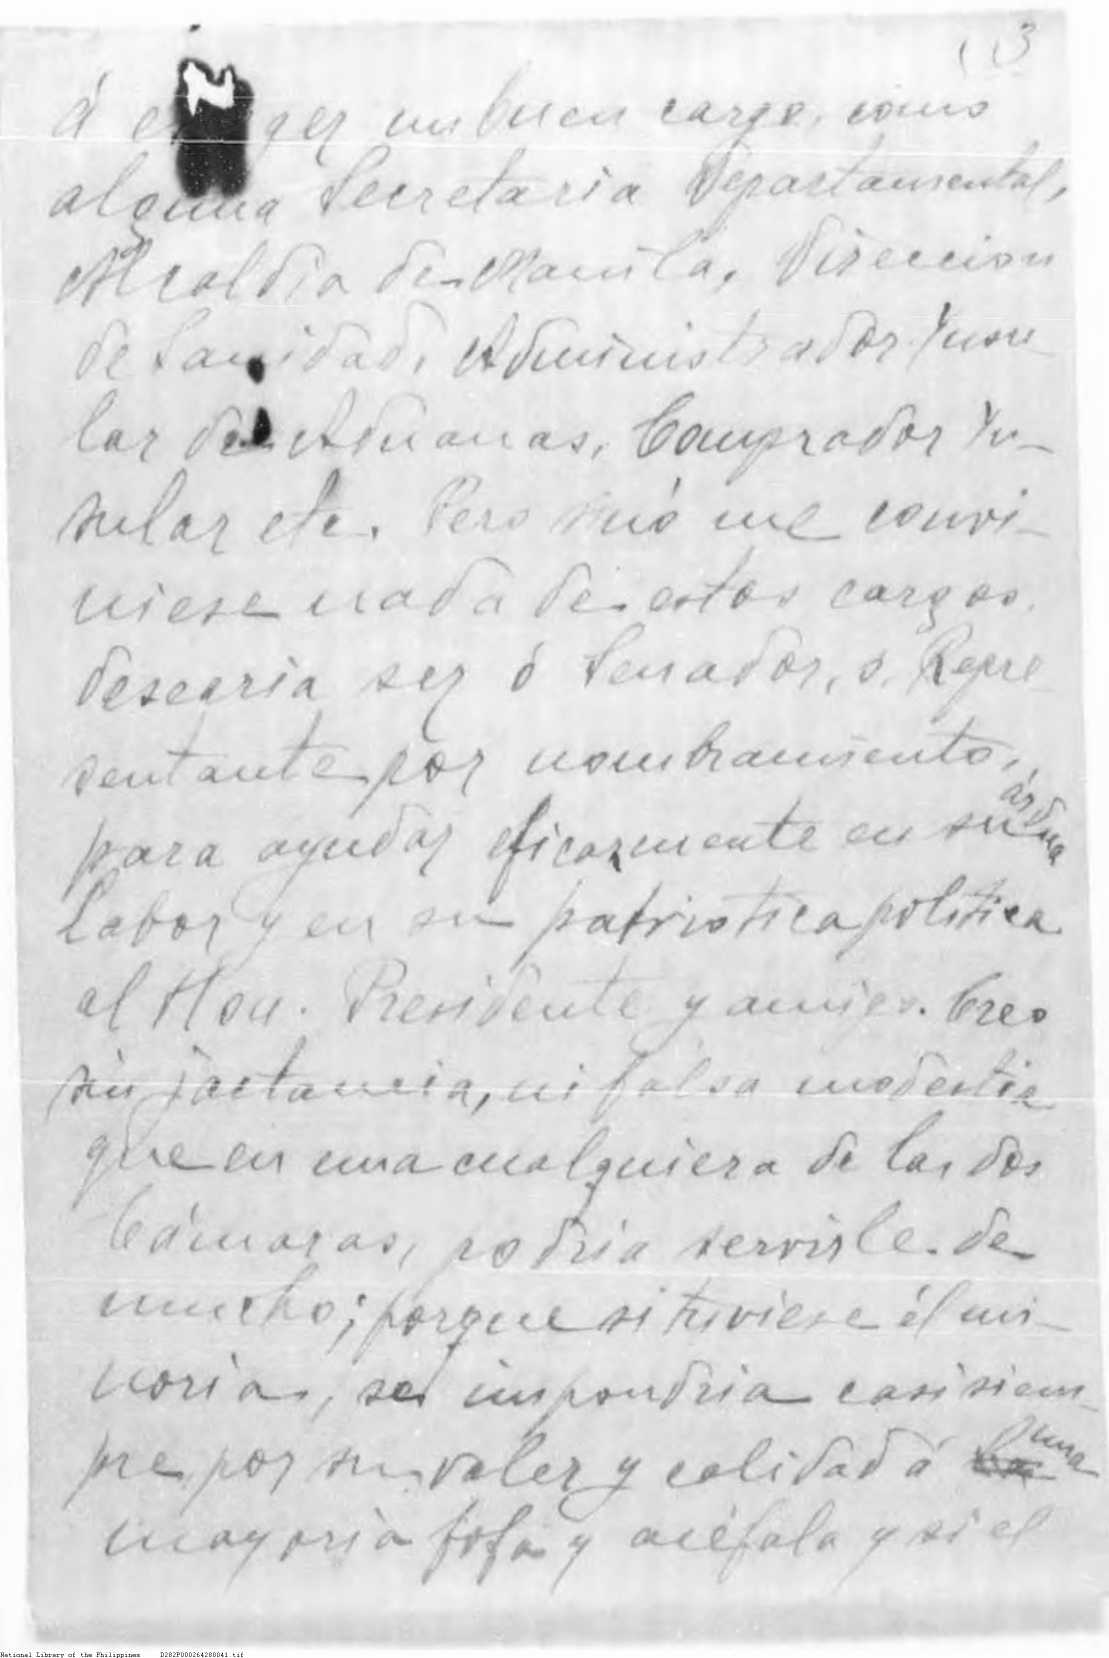 3
á escoger un buen cargo, como
alguna Secretaria Departamental,
Alcaldia de Manila, Direccion
de Sanidad, Administrador Insu-
lar de Aduanas, Comprador In-
sular etc. Pero sinó me convi-
niese nada de estos cargos,
desearia ser ó Senador, ó Repre-
sentante por nombramiento,
para ayudar eficazmente en su árdua
labor y en su patriotica politica
al Hon. Presidente y amigo. Creo
sin jactancia, ni falsa modestia
que en una cualquiera de las dos
Cámaras, podria servirle de
mucho; porque si tuviese él mi-
noria, se impondria casi siem-
pre por su valer y calidad á una
mayoria fofa y acéfala y si el
National Library of the Philippines D282P000264280041.tif